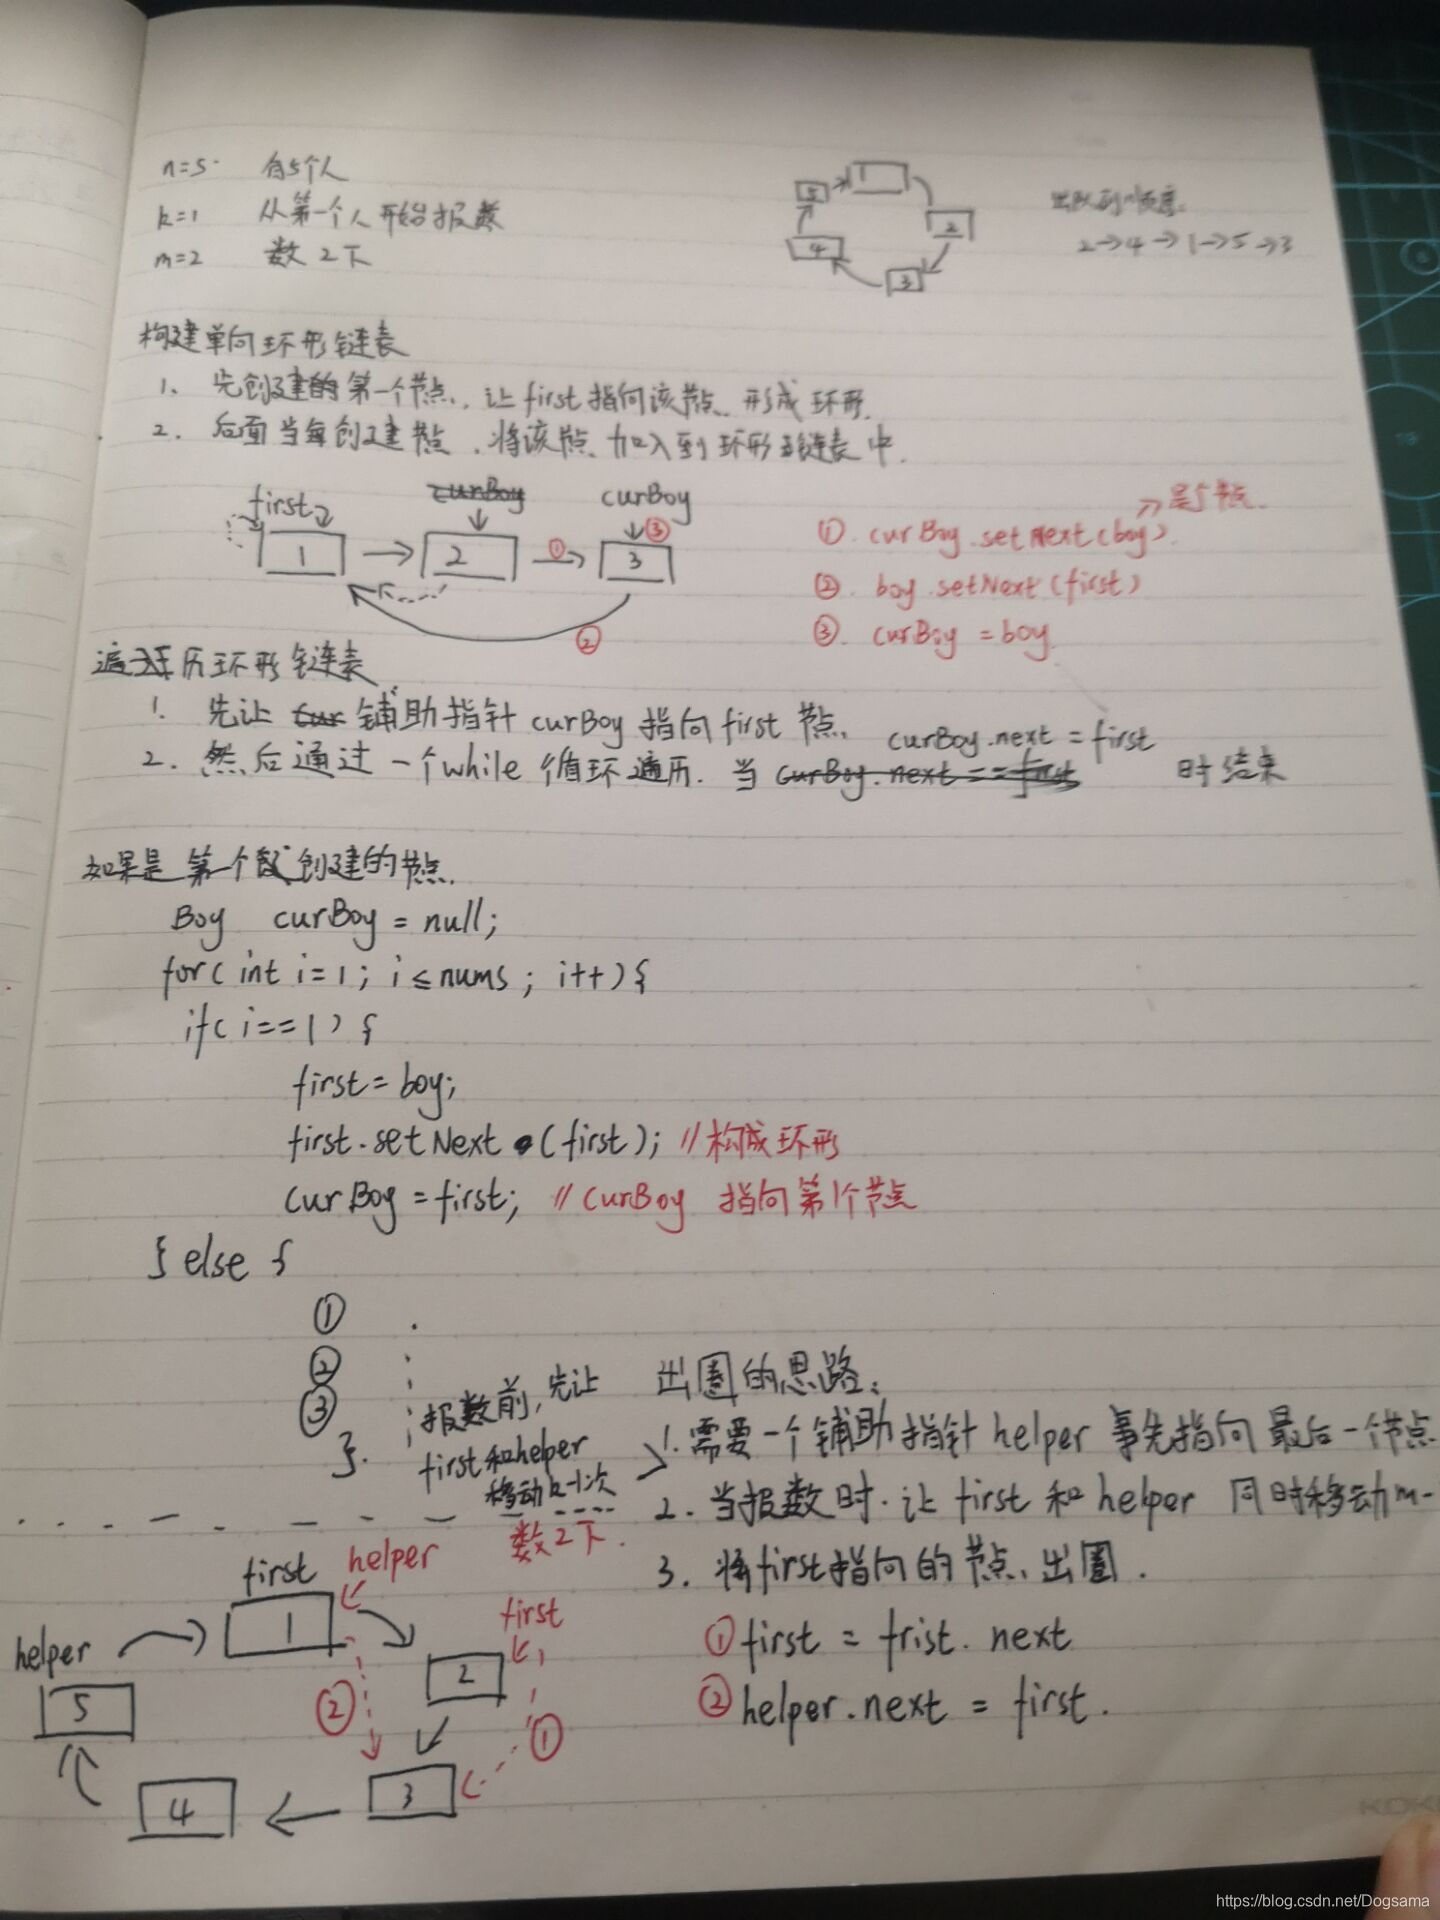 n=5 有5个人
k=1 从第一个人开始报数
m=2 数2下
1
2
3
4
5
出队列顺序:
2→4→1→5→3
构建单向环形链表
1. 先创建的第一个节点, 让first指向该节点, 形成环形.
2. 后面当每创建节点, 将该节点, 加入到环形链表中.
first
curBoy
curBoy
1
2
3
①
②
③
① curBoy.setNext(boy).
是5节点.
② boy.setNext(first)
③ curBoy = boy
遍历环形链表
1. 先让 cur 辅助指针 curBoy 指向first节点,
2. 然后通过一个while循环遍历. 当 curBoy.next == first 时结束
curBoy.next = first
如果是第个 创建的节点.
Boy curBoy = null;
for( int i=1; i≤nums; i++){
if( i==1) {
first = boy;
first.setNext (first); //构成环形
curBoy = first; //curBoy 指向第1个节点
} else {
①
②
③
}.
报数前, 先让
first和helper
移动k-1次
出圈的思路:
1. 需要一个辅助指针helper 事先指向最后一个节点
2. 当报数时. 让 first 和 helper 同时移动m-
3. 将first指向的节点, 出圈.
① first = frist. next
② helper.next = first.
数2下.
first
helper
first
helper
1
2
3
4
5
②
①
KOK
https://blog.csdn.net/Dogsama